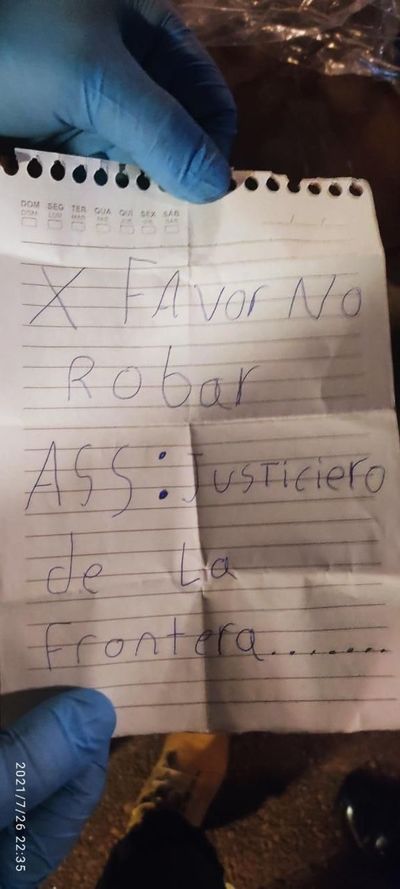 DOM SEG TER QUA QUI SEX SAB
DOM LUN MAR MIE JUE VIE SAB
X FAvor No
Robar
ASS: JusTiciero
de La
Frontera........
2021/7/26 22:35